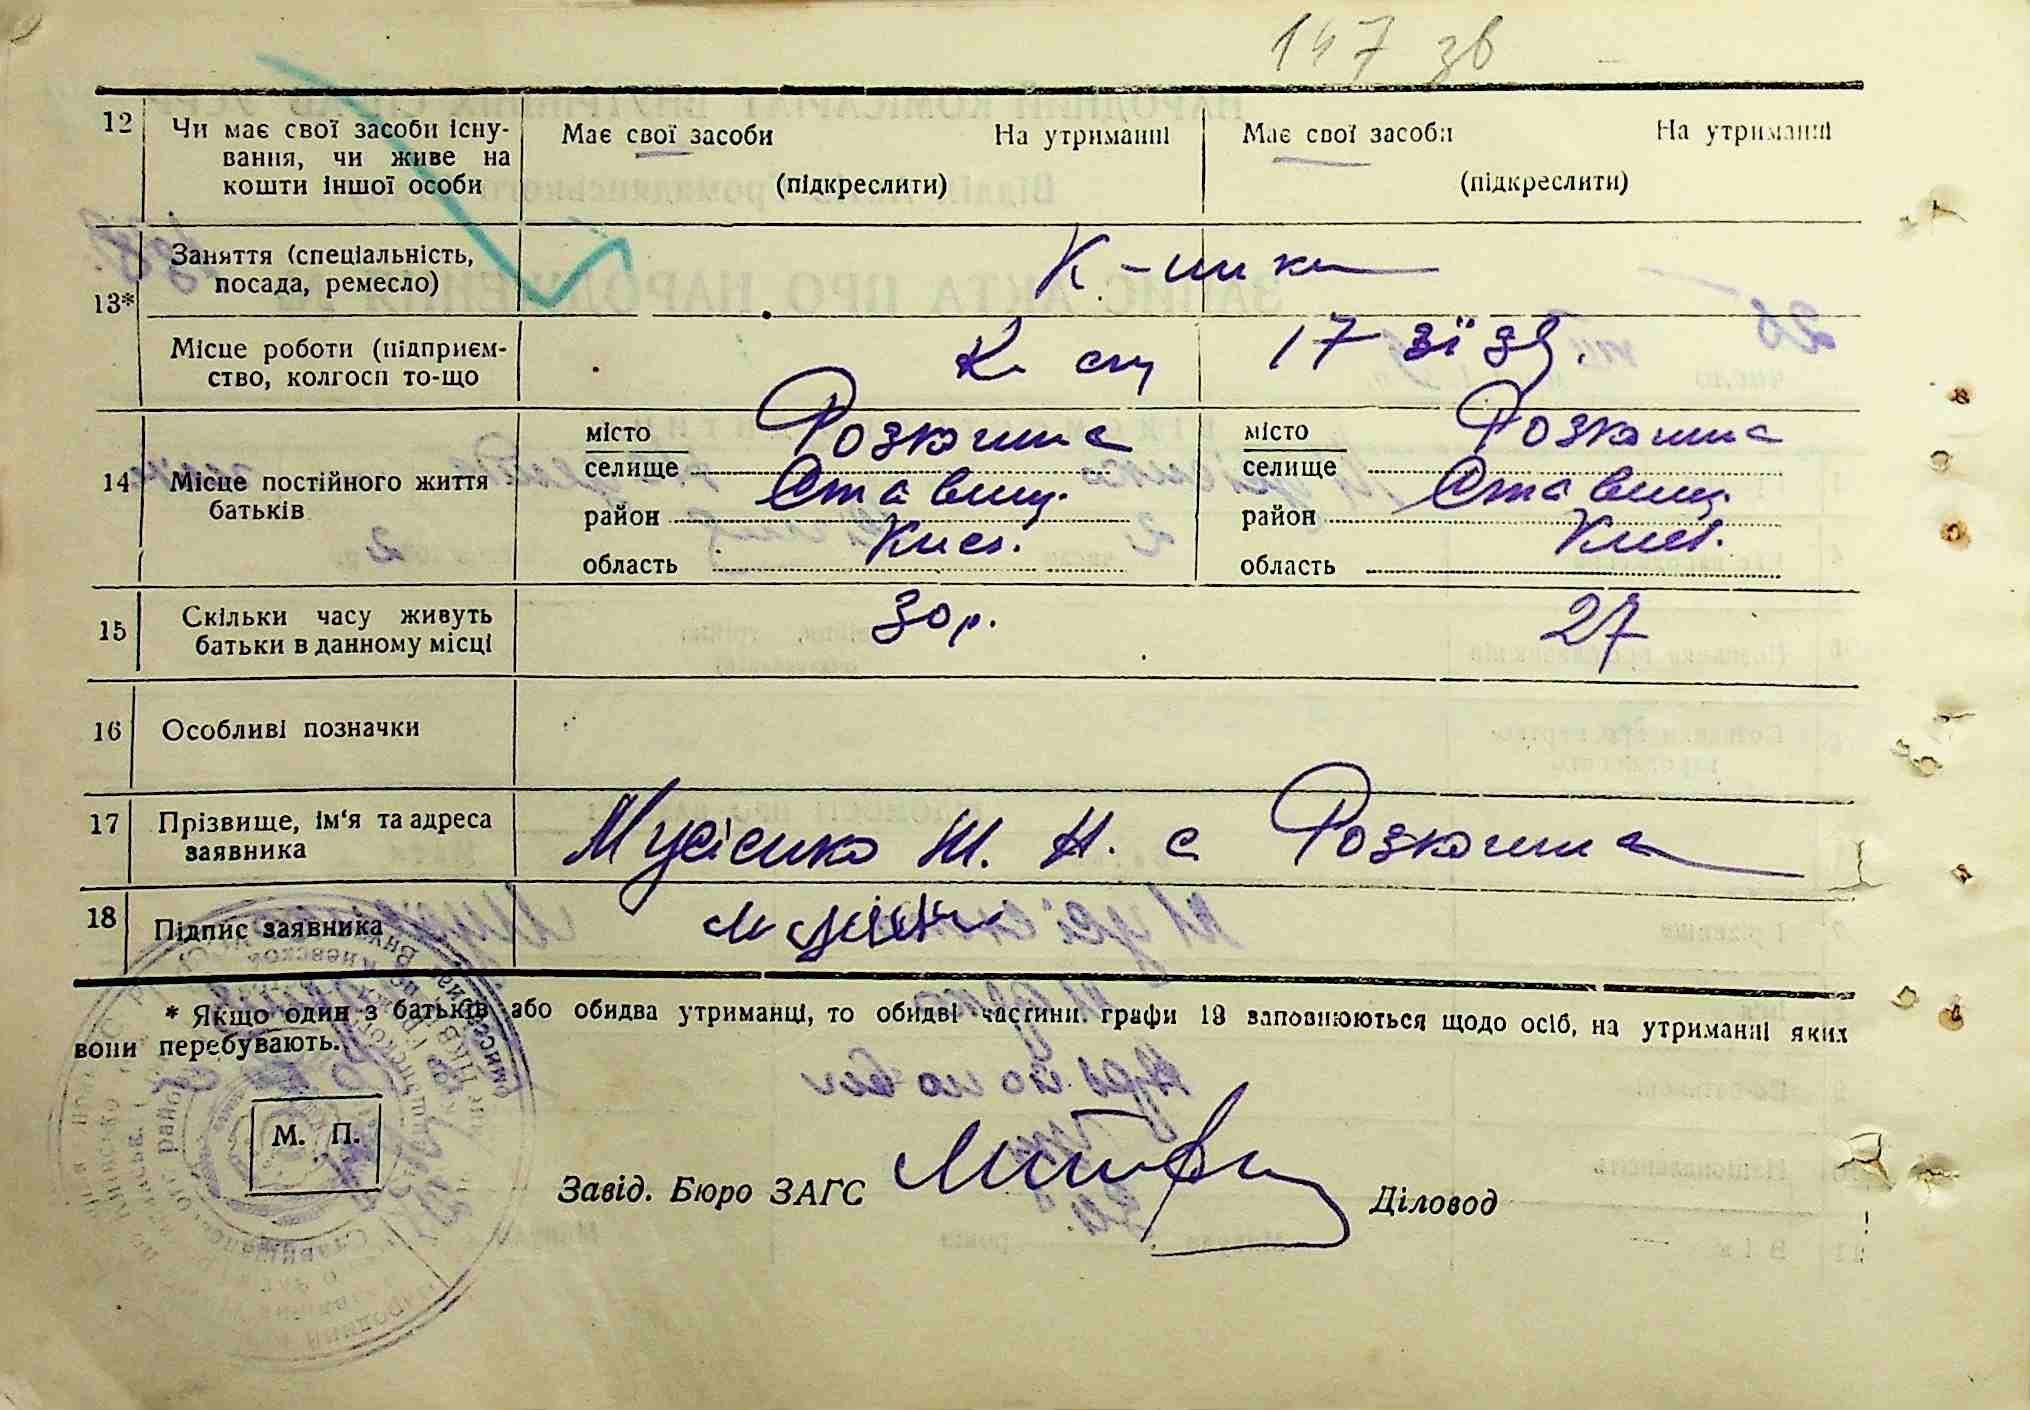 147 зв
12 Чи має свої засоби існу- Має свої засоби На утриманні Має свої засоби На утриманні
вання, чи живе на
кошти іншої особи (підкреслити) (підкреслити)
13* Заняття (спеціальність,
посада, ремесло) К-ники
Місце роботи (підприєм-
ство, колгосп то-що К. сп 17 зїзд.
14 Місце постійного життя
батьків
місто Розкошна місто Розкошна
селище селище
район Ставищ. район Ставищ.
область Києв. область Києв.
15 Скільки часу живуть
батьки в данному місці 30 р. 27
16 Особливі позначки
17 Прізвище, ім'я та адреса
заявника Мусієнко Н. с Розкошна
18 Підпис заявника
* Якщо один з батьків або обидва утриманці, то обидві частини графи 13 заповнюються щодо осіб, на утриманні яких
вони перебувають.
М. П.
Завід. Бюро ЗАГС Діловод